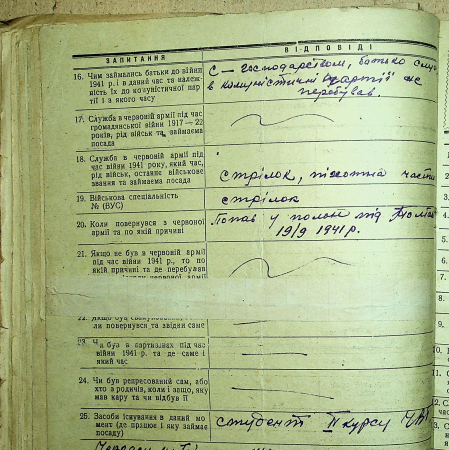 ЗАПИТАННЯ
ВІДПОВІДІ
16. Чим займались батьки до війни
1941 р. і в даний час та належ-
ність їх до комуністичної пар-
тії і з якого часу
С — господарством, батько
в комуністичній партії не
перебував.
17. Служба в червоній армії під час
громадянської війни 1917—22
років, рід військ та займаєма
посада
18. Служба в червоній армії під
час війни 1941 року, який час,
рід військ, останнє військове
звання та займаєма посада
стрілок, піхотна части
19. Військова спеціальність
№ (ВУС)
стрілок
20. Коли повернувся з червоної
армії та по якій причині
Попав у полон під
19/9 1941 р.
21. Якщо не був в червоній армії
під час війни 1941 р., то по
якій причині та де перебував
червоної армії
22. Якщо був
ли повернувся та звідки саме
23. Чи був в партизанах під час
війни 1941 р. та де саме і
який час
24. Чи був репресований сам, або
хто з родичів, коли і защо, яку
мав кару та чи відбув її
25. Засоби існування в даний мо-
мент (де працює і яку займає
посаду)
студент II курсу